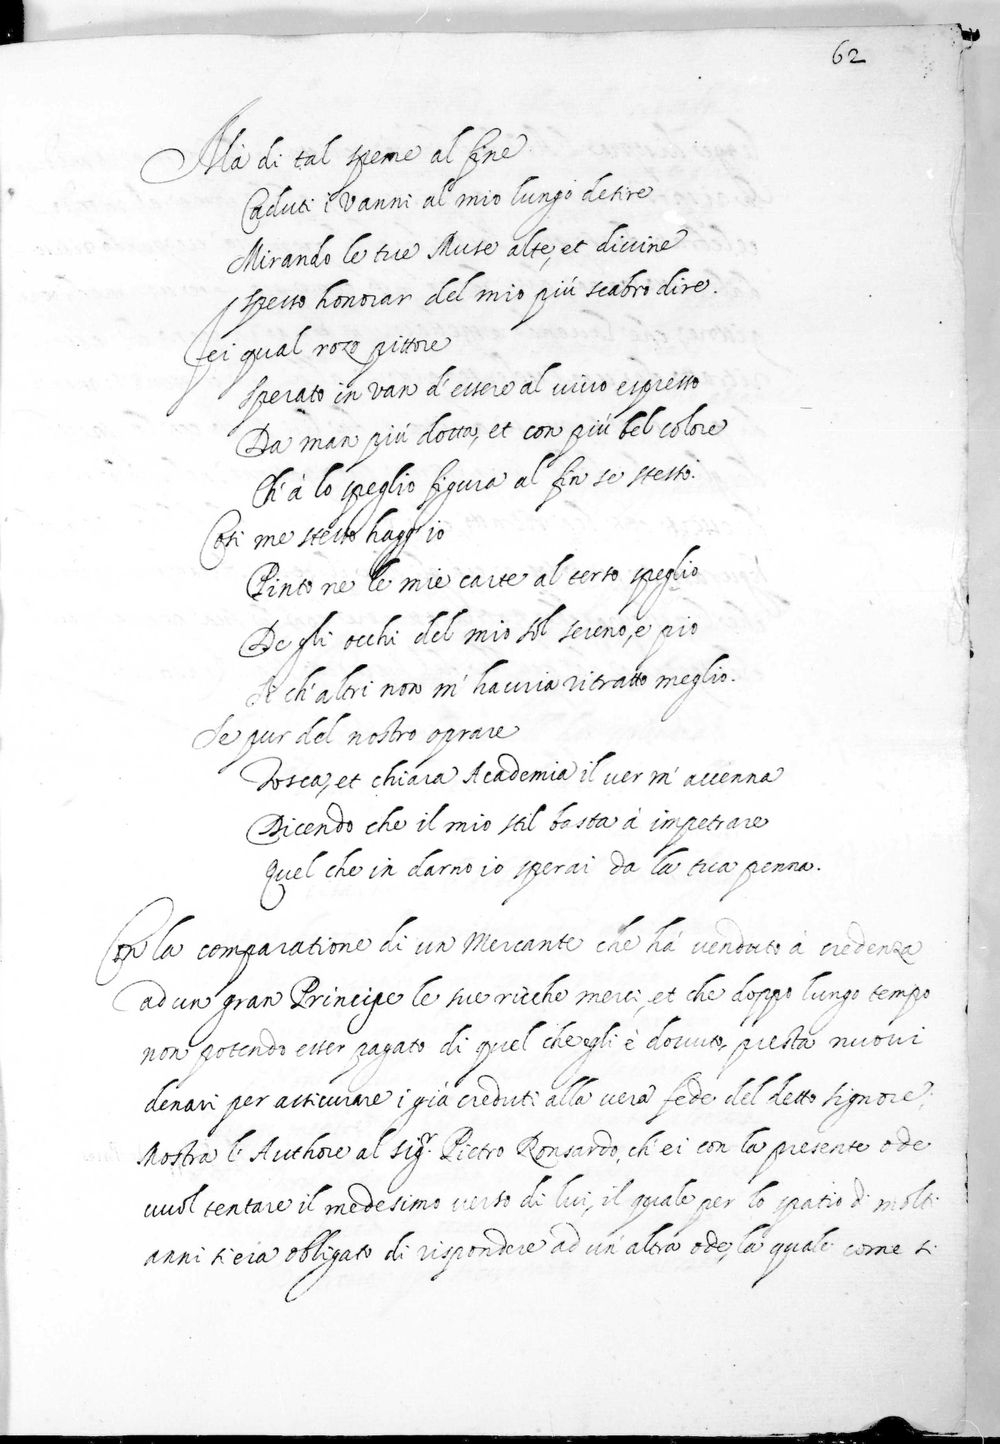 62
Mà di tal speme al fine
Caduti i vanni al mio lungo desire
Mirando le tue Muse alte, et divine
Spesso honorar del mio più scabro dire.
Fei qual rozo pittore
Sperato in van d'essere al vivo espresso
Da man più dotta, et con più bel colore
Ch'à lo speglio figura al fin se stesso.
Così me stesso hagg'io
Pinto ne le mie carte al terso speglio
De gli occhi del mio sol sereno, e pio
Si ch'altri non m'havria ritratto meglio.
Se pur del nostro oprare
Tosca, et chiara Academia il ver m'accenna
Dicendo che il mio stil basta à impetrare
Quel che in darno io sperai da la tua penna.
Con la comparatione di un Mercante che hà venduto à credenza
ad un gran Principe le sue ricche merci, et che doppo lungo tempo
non potendo esser pagato di quel che egli è dovuto, presta nuovi
denari per assicurare i già creduti alla vera fede del detto signore;
Mostra l'Authore al sigr. Pietro Ronsardo, ch'ei con la presente ode
vuol tentare il medesimo verso di lui, il quale per lo spatio di molti
anni s'era obligato di rispondere ad un'altra ode, la quale come si